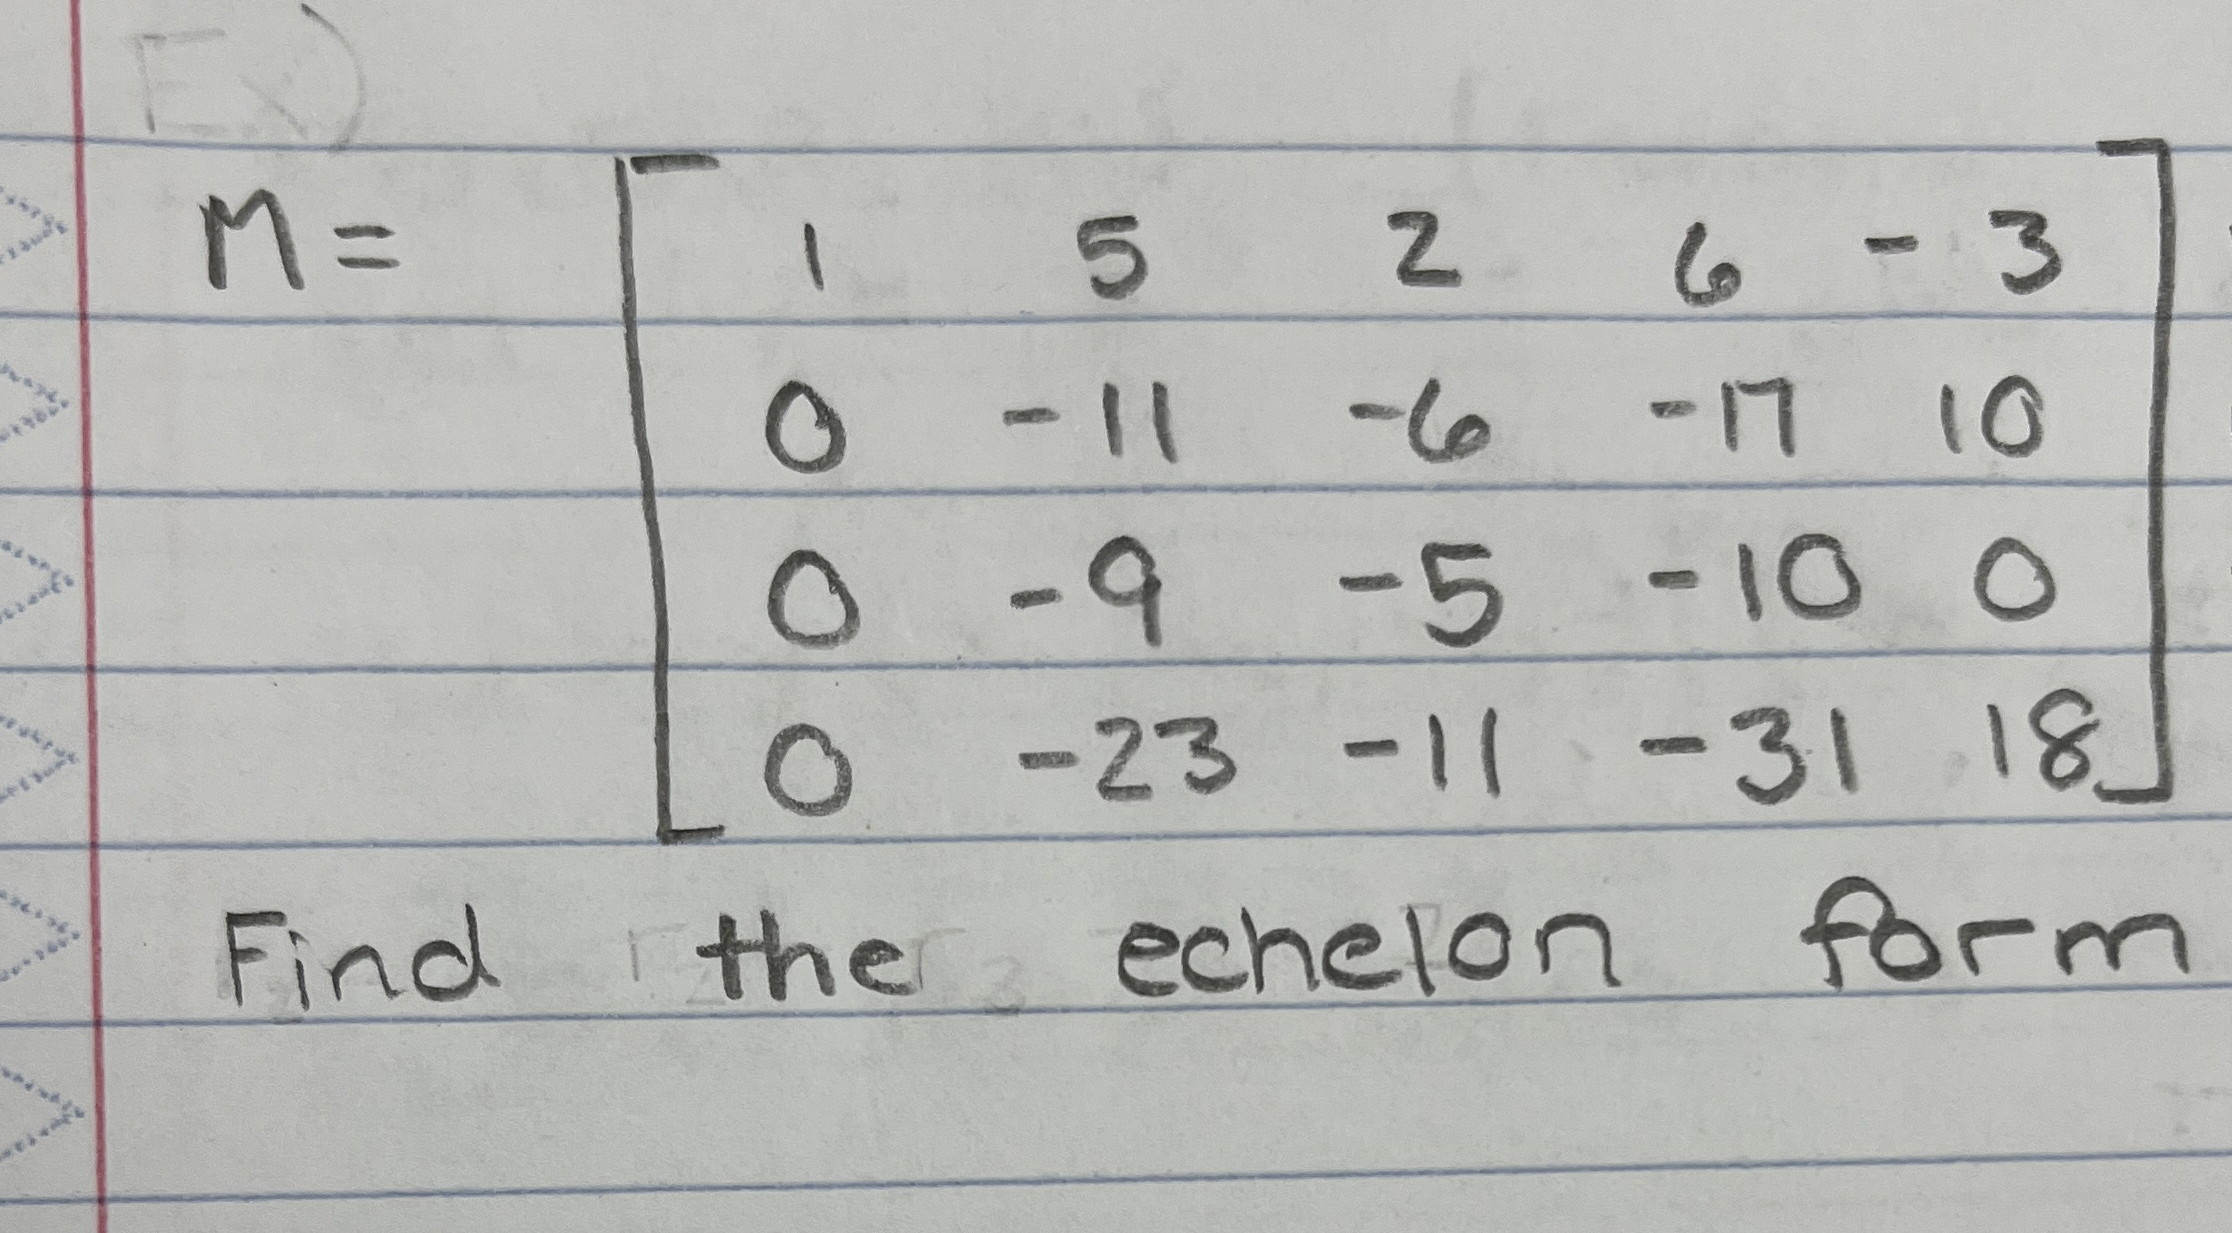 Ex)
M = 1 5 2 6 - 3
0 -11 -6 -17 10
0 -9 -5 -10 0
0 -23 -11 -31 18
Find the echelon form